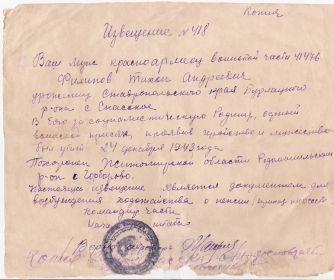 Копия
Извещение №418
Ваш муж красноармеец воинской части 41476
Филипов Тихон Андреевич
уроженец Ставропольского края Бурлацкого
р-она с Спасское
В бою за социалистическую Родину, верный
воинской присяге, проявив геройство и мужество
был убит 24 декабря 1943 года
Похоронен Житомирской области Радомышльский
р-он с
Настоящее извещение является документом для
возбуждения ходатайства о пенсии (приказ
Командир части
Начал штаба